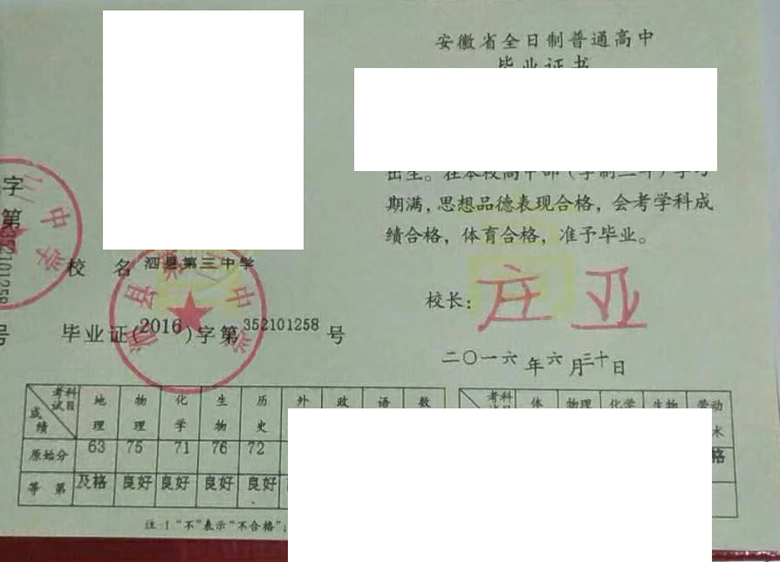 安徽省全日制普通高中
毕业证书
出生。在本校高中部(学制三年)学习
期满,思想品德表现合格,会考学科成
绩合格,体育合格,准予毕业。
校长:
二〇一六年六月三十日
字第352101258号
校名 泗县第三中学
毕业证(2016)字第352101258号
考试科目 地理 物理 化学 生物 历史 外 政 语 数
成绩
原始分 63 75 71 76 72
等第 及格 良好 良好 良好 良好
注:1."不"表示"不合格";
考科 体 物理 化学 生物 劳动
术
格